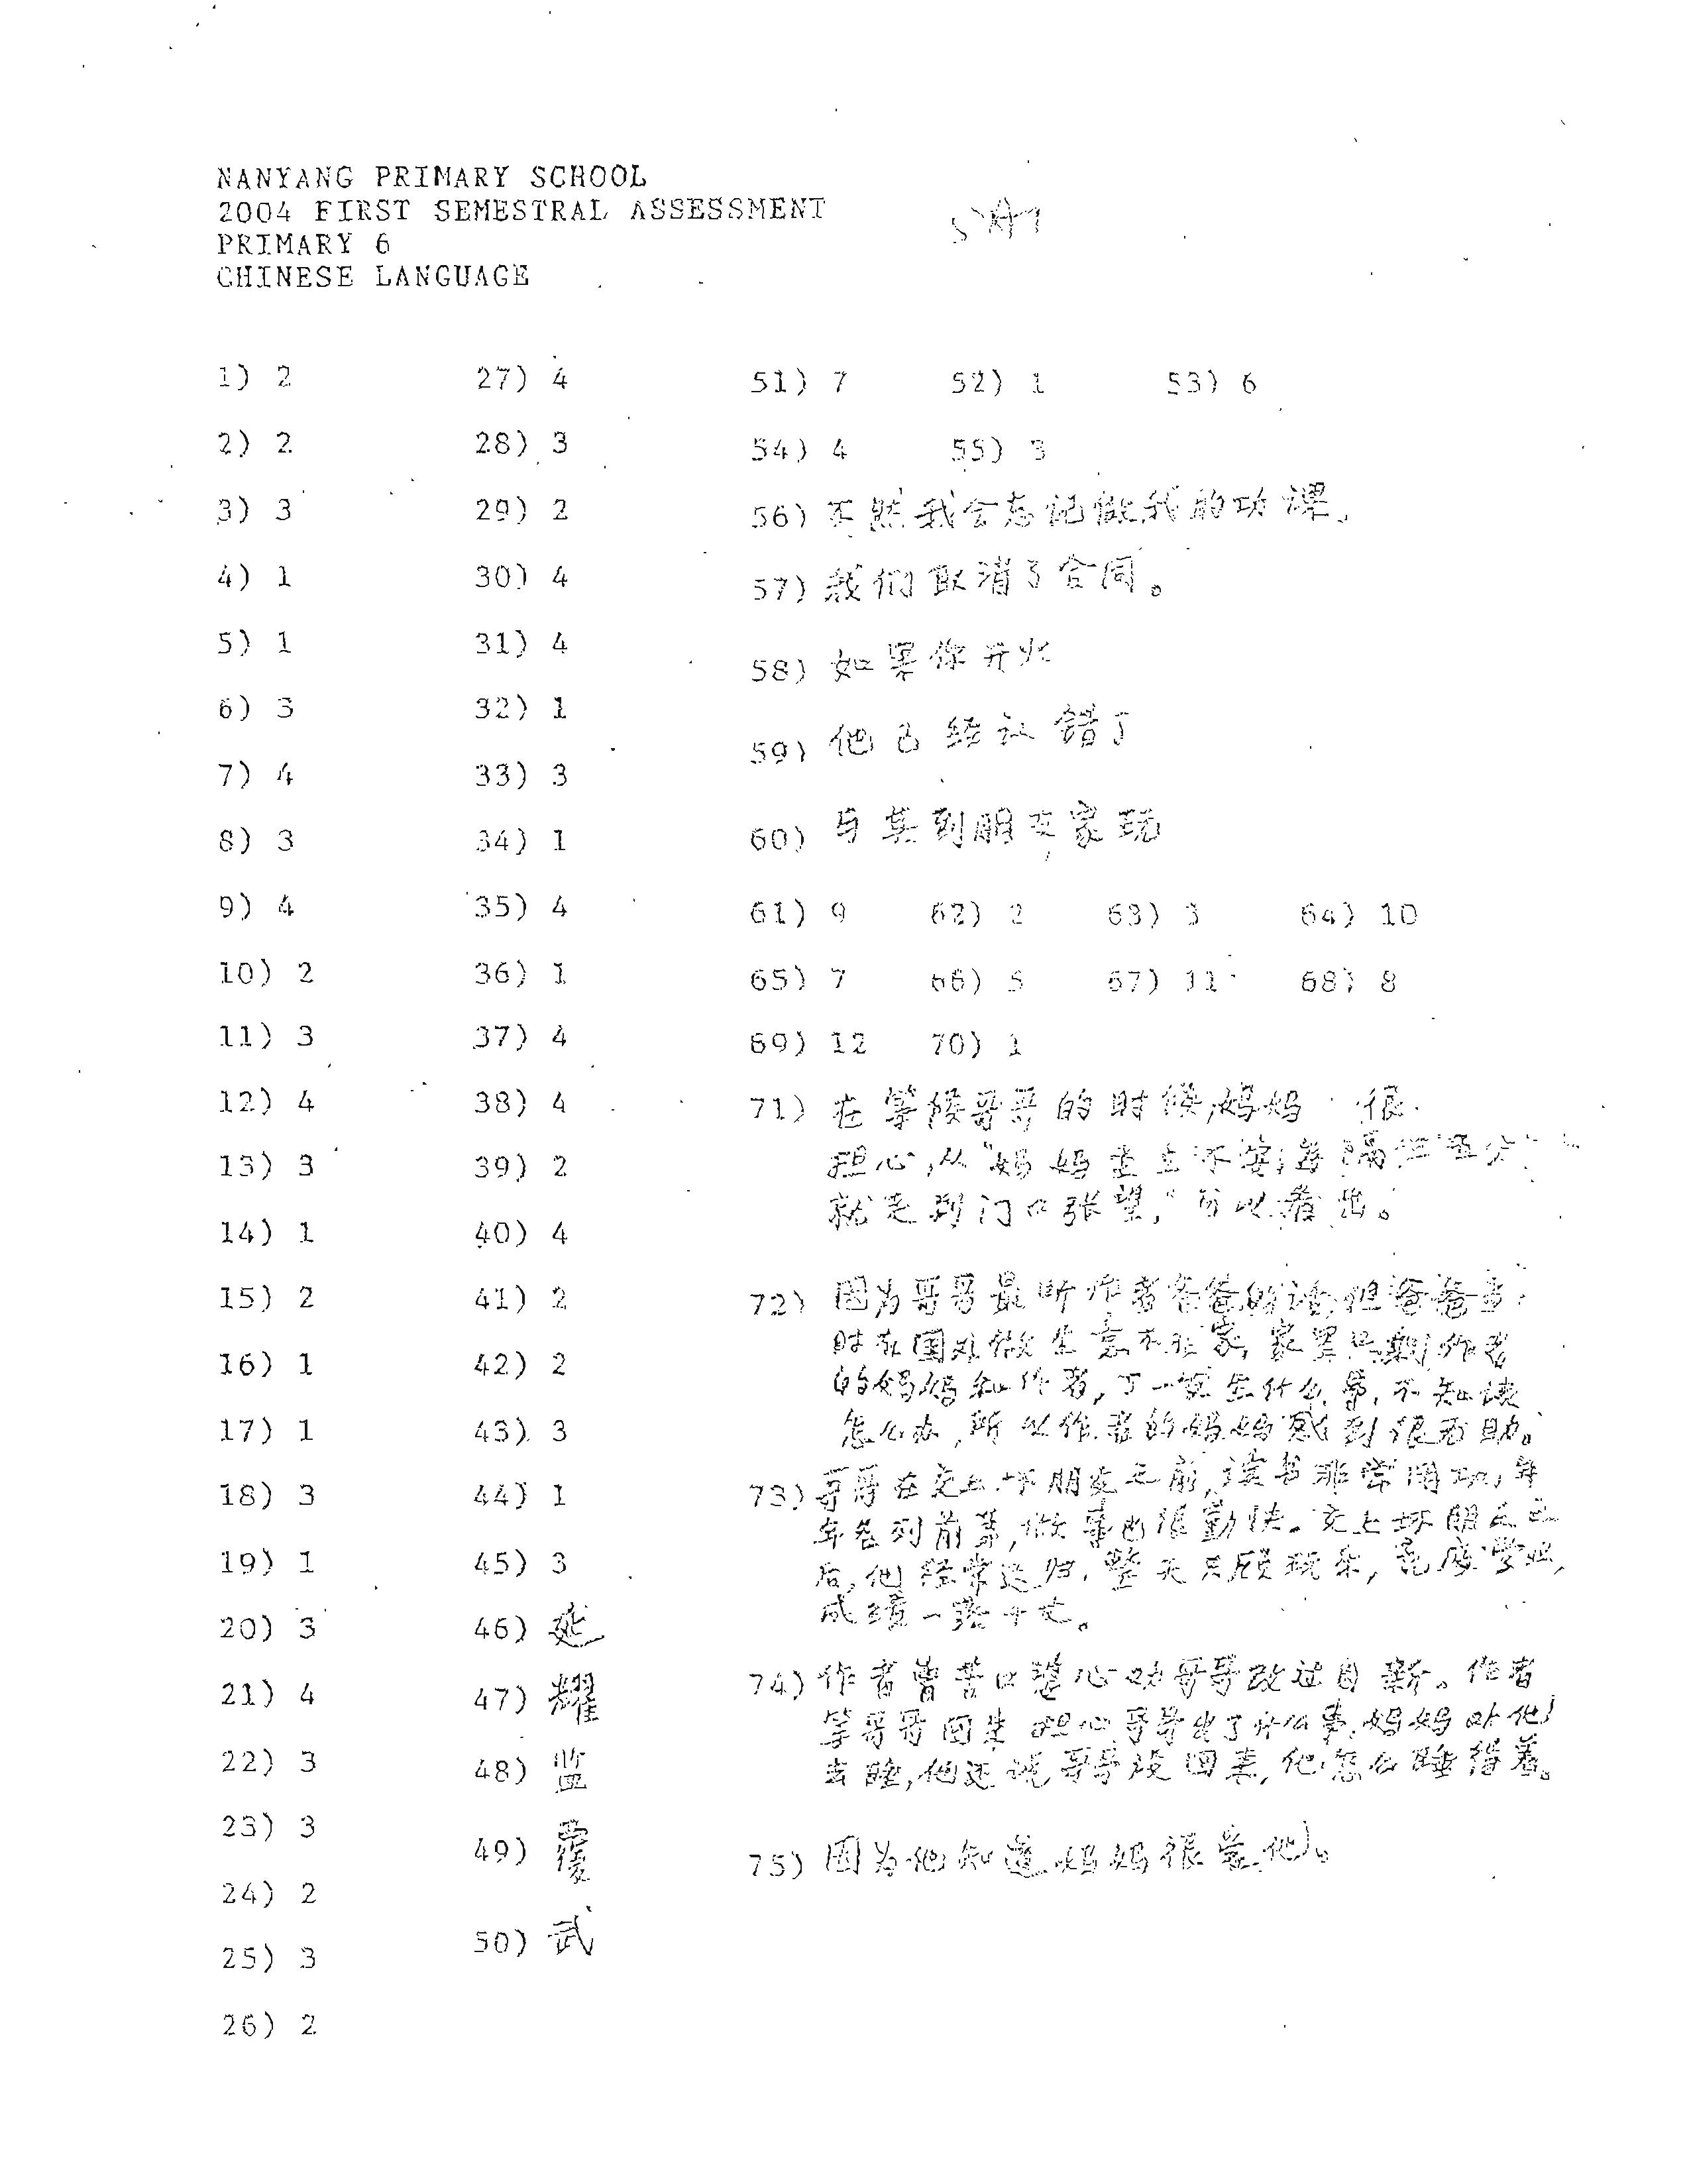 NANYANG PRIMARY SCHOOL
2004 FIRST SEMESTRAL ASSESSMENT
SA1
PRIMARY 6
CHINESE LANGUAGE
1) 2
2) 2
3) 3
4) 1
5) 1
6) 3
7) 4
8) 3
9) 4
10) 2
11) 3
12) 4
13) 3
14) 1
15) 2
16) 1
17) 1
18) 3
19) 1
20) 3
21) 4
22) 3
23) 3
24) 2
25) 3
26) 2
27) 4
28) 3
29) 2
30) 4
31) 4
32) 1
33) 3
34) 1
35) 4
36) 1
37) 4
38) 4
39) 2
40) 4
41) 2
42) 2
43) 3
44) 1
45) 3
46) 延
47) 耀
48) 监
49) 覆
50) 武
51) 7 52) 1 53) 6
54) 4 55) 3
56) 不然我会忘记做我的功课。
57) 我们取消了合同。
58) 如果你开火
59) 他已经认错了
60) 与其到朋友家玩
61) 9 62) 2 63) 3 64) 10
65) 7 66) 5 67) 11 68) 8
69) 12 70) 1
71) 在等候哥哥的时候,妈妈 很
担心,从“妈妈坐立不安,每隔 五分
就走到门口张望,”可以看出。
72) 因为哥哥最听作者爸爸的话,但爸爸当
时在国外做生意不在家,家里只剩作者
的妈妈和作者,万一发生什么事,不知该
怎么办,所以作者的妈妈感到很无助。
73) 哥哥在交上坏朋友之前,读书非常用功,年
年名列前茅,做事也很勤快。交上坏朋友之
后,他经常迟归,整天只顾玩乐,荒废学业,
成绩一落千丈。
74) 作者曾苦口婆心劝哥哥改过自新。作者
等哥哥回来 担心哥哥出了什么事,妈妈叫他
去睡,他还说哥哥没回来,他怎么睡得着。
75) 因为他知道妈妈很爱他。